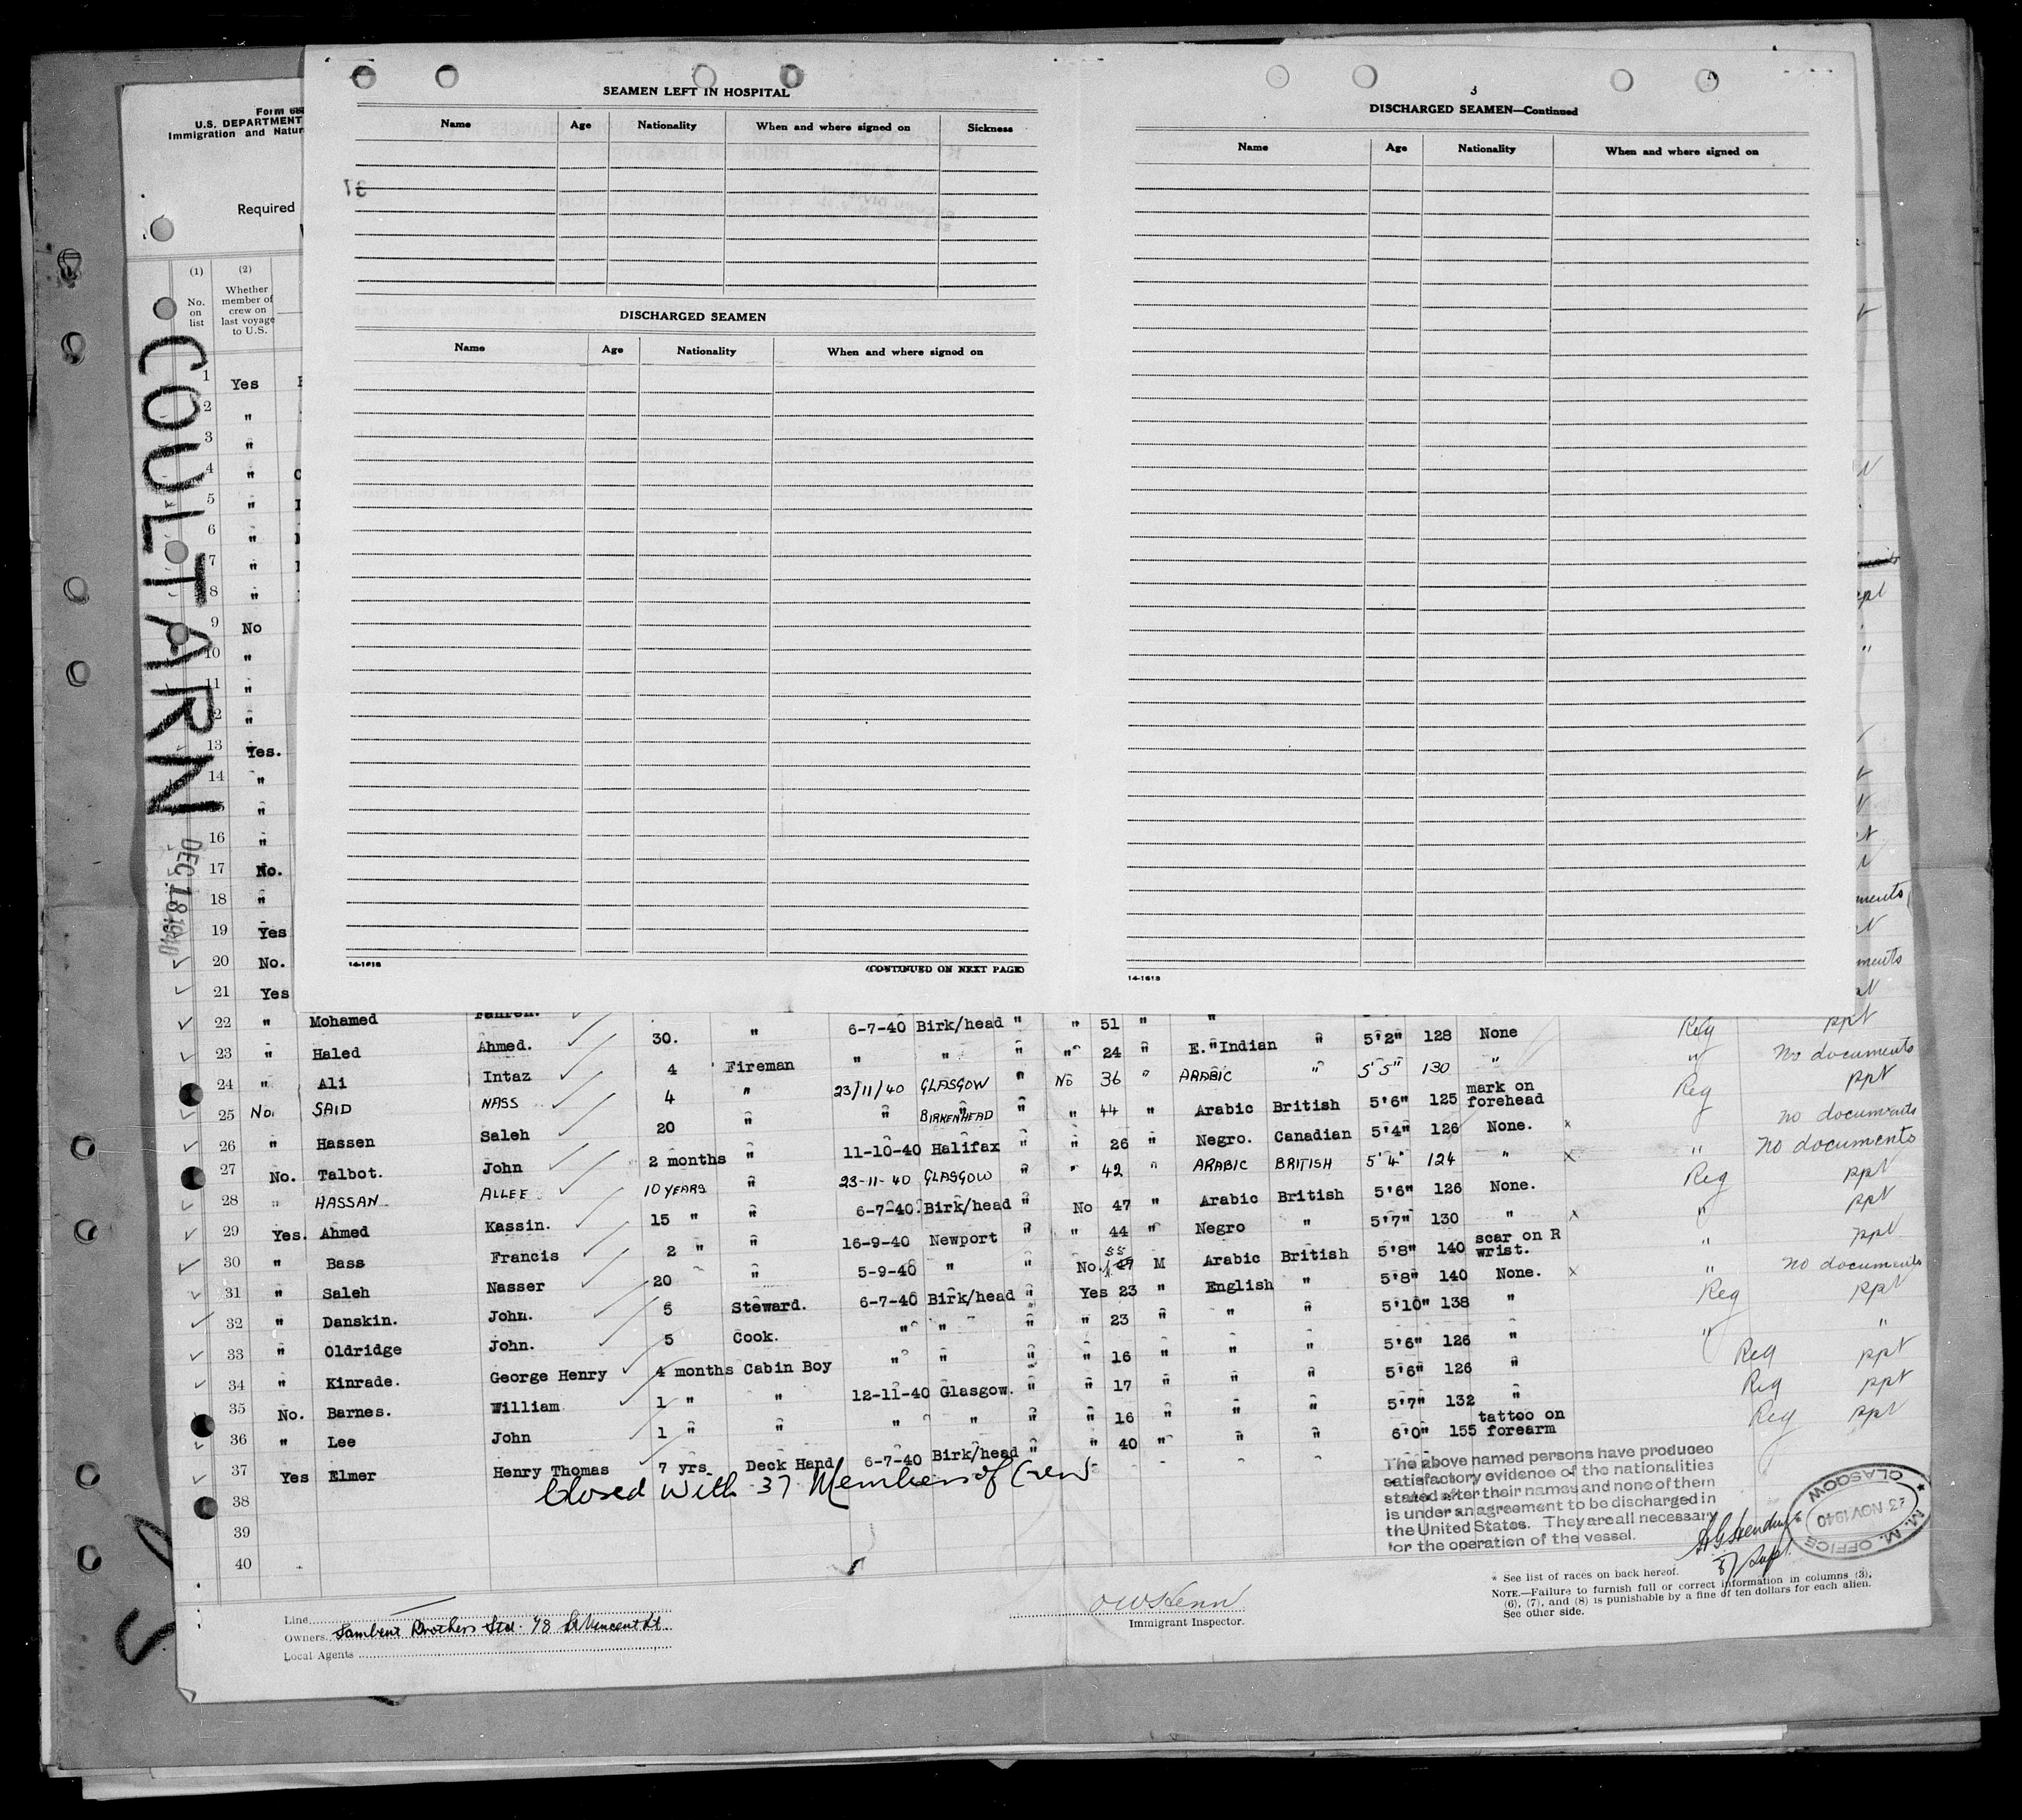 Form 68
U.S. DEPARTMENT
Immigration and Natur
Required
COULTARN
DEC 18 1940
(1) (2)
No. on list
Whether member of crew on last voyage to U.S.
SEAMEN LEFT IN HOSPITAL
Name Age Nationality When and where signed on Sickness
DISCHARGED SEAMEN
Name Age Nationality When and where signed on
14-1618
(CONTINUED ON NEXT PAGE)
3
DISCHARGED SEAMEN—Continued
Name Age Nationality When and where signed on
14-1618
1 Yes
2 "
3 "
4 "
5 "
6 "
7 "
8 "
9 No
10 "
11 "
12 "
13 Yes.
14 "
15 "
16 "
17 No.
18 "
19 Yes
20 No.
21 Yes
22 " Mohamed Fahren. 30. " 6-7-40 Birk/head " " 51 " " 5'2" 128 None Reg ppt
23 " Haled Ahmed. 4 Fireman " " " " 24 " E. Indian " 5'5" 130 " " No documents
24 " Ali Intaz 4 " 23/11/40 GLASGOW " No 36 " ARABIC " 5'6" 125 mark on forehead Reg ppt
25 No. SAID NASS 20 " " BIRKENHEAD " " 44 " Arabic British 5'4" 126 None. x no documents
26 " Hassen Saleh 2 months " 11-10-40 Halifax " " 26 " Negro. Canadian 5'4" 124 " x " no documents
27 No. Talbot. John 10 YEARS " 23-11-40 GLASGOW " " 42 " ARABIC BRITISH 5'6" 126 None. Reg ppt
28 " HASSAN ALLEE 15 " " 6-7-40. Birk/head " No 47 " Arabic British 5'7" 130 " x " ppt
29 Yes. Ahmed Kassin. 2 " " 16-9-40 Newport " " 44 " Negro " 5'8" 140 scar on R wrist. " ppt
30 " Bass Francis 20 " 5-9-40 " " No. 55 M Arabic British 5'8" 140 None. x " no documents
31 " Saleh Nasser 5 Steward. 6-7-40 Birk/head " Yes 23 " English " 5'10" 138 " Reg ppt
32 " Danskin. John. 5 Cook. " " " " 23 " " " 5'6" 126 " " "
33 " Oldridge John. 4 months Cabin Boy " " " " 16 " " " 5'6" 126 " Reg ppt
34 " Kinrade. George Henry 1 " " 12-11-40 Glasgow. " " 17 " " " 5'7" 132 " Reg ppt
35 No. Barnes. William 1 " " " " " " 16 " " " 6'0" 155 tattoo on forearm Reg ppt
36 " Lee John 7 yrs. Deck Hand 6-7-40 Birk/head " " 40 " " "
37 Yes Elmer Henry Thomas
Closed with 37 Members of Crew
38
39
40
The above named persons have produced
satisfactory evidence of the nationalities
stated after their names and none of them
is under an agreement to be discharged in
the United States. They are all necessary
for the operation of the vessel.
M. M. OFFICE
23 NOV 1940
GLASGOW
* See list of races on back hereof.
NOTE.—Failure to furnish full or correct information in columns (3),
(6), (7), and (8) is punishable by a fine of ten dollars for each alien.
See other side.
Line
Owners Lambert Brothers Ltd. 78 St Vincent St.
Local Agents
Immigrant Inspector.